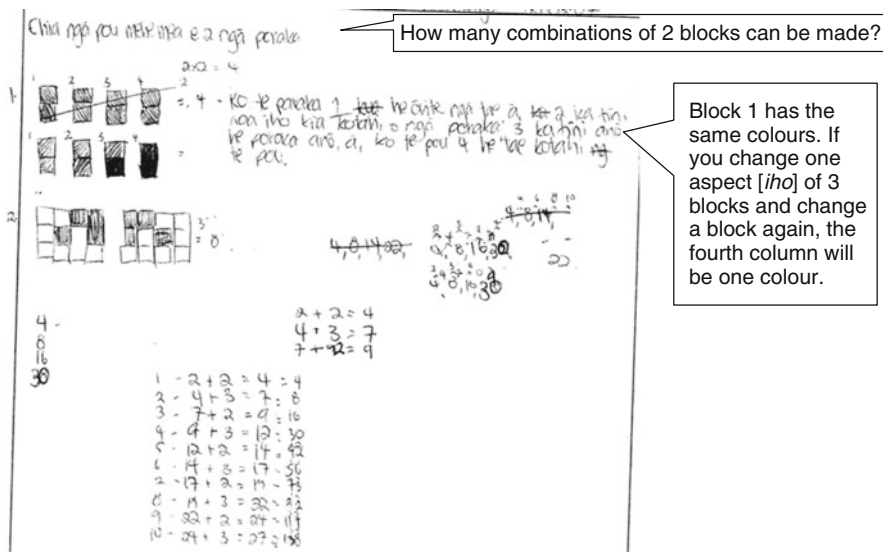 Chia ngā pou mehemea e 2 ngā poraka
How many combinations of 2 blocks can be made?
2x2 = 4
1.
1 2 3 4
= 4 - Ko te poraka 1 he ōrite ngā ka tini
noa iho kia kotahi, o ngā poraka 3 ka tini anō
he poraka anō, ā, ko te pou 4 he tae kotahi
te pou.
1 2 3 4
=
Block 1 has the
same colours. If
you change one
aspect [iho] of 3
blocks and change
a block again, the
fourth column will
be one colour.
2.
= 8
4, 8, 14, 22,
4, 8, 14,
4, 8, 16, 30
22
4, 8, 16, 30
2 + 2 = 4
4 + 3 = 7
7 + 2 = 9
4 -
8
16
30
1 - 2 + 2 = 4 = 4
2 - 4 + 3 = 7 = 8
3 - 7 + 2 = 9 = 16
4 - 9 + 3 = 12 = 30
5 - 12 + 2 = 14 = 42
6 - 14 + 3 = 17 - 56
17 + 2 = 19 - 73
8 - 19 + 3 = 22 =
9 - 22 + 2 = 24 =
10 - 24 + 3 = 27 =